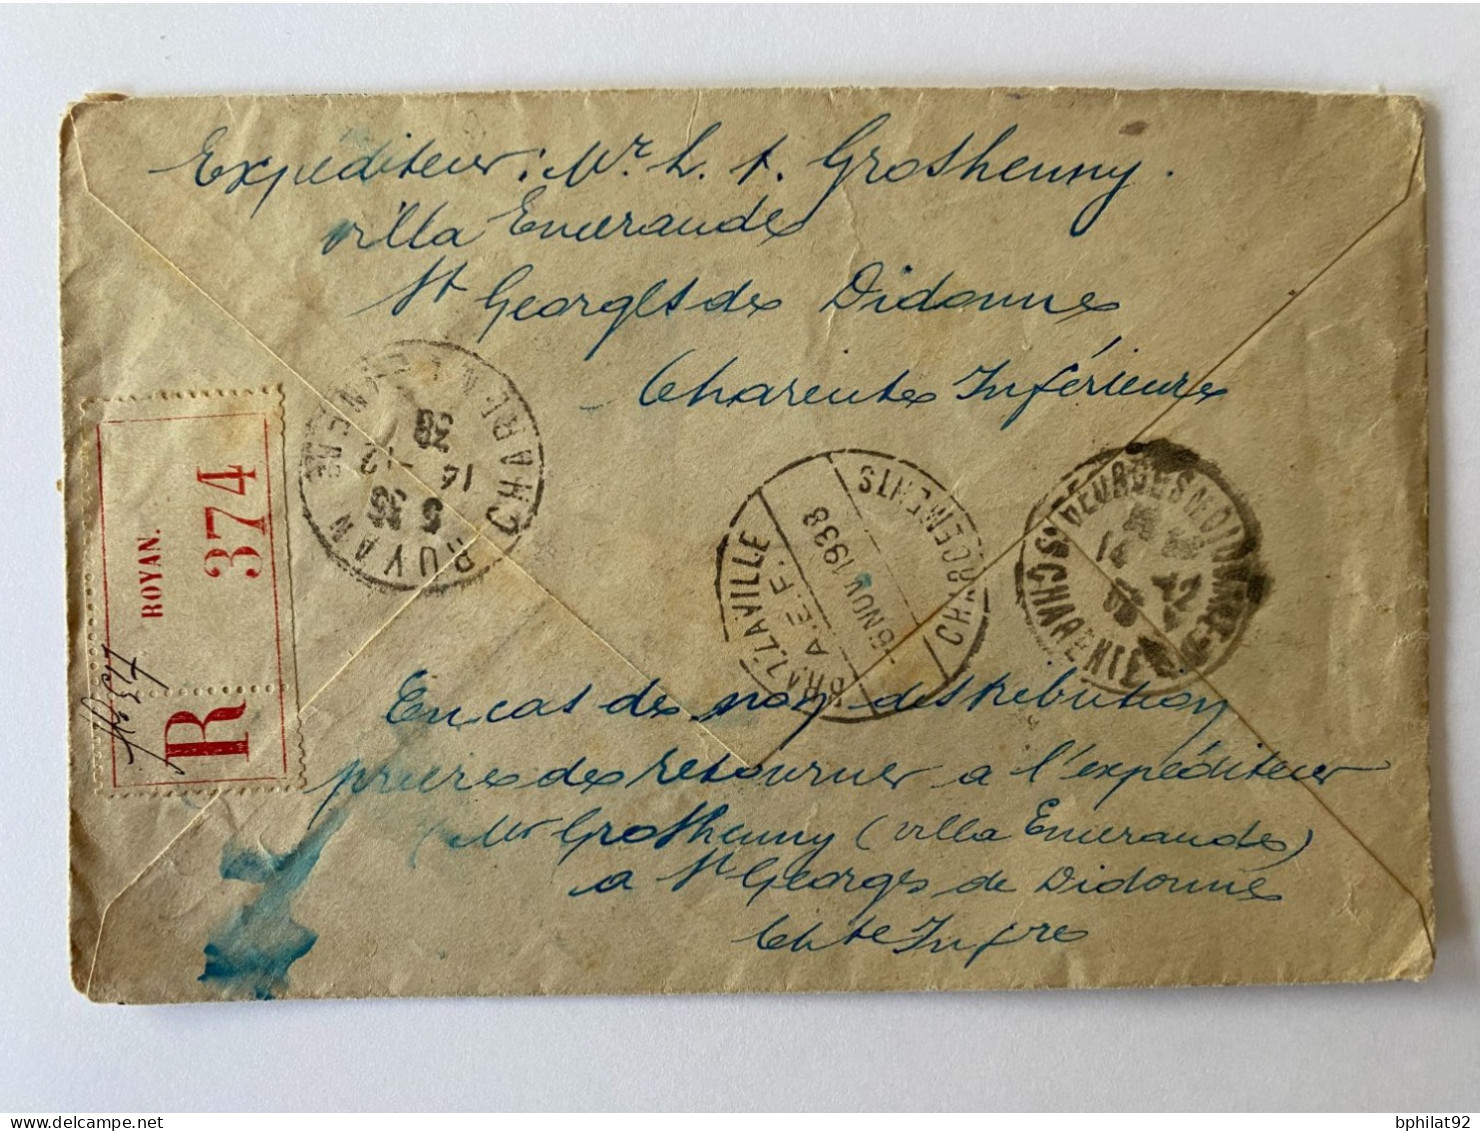 Expéditeur : Mr. L. A. Grothenny.
villa Emeraude
St Georges de Didonne
Charente Inférieure
ROYAN.
374
R
ROYAN
CHARENTE
14 -12
38
BRAZZAVILLE
A.E.F.
6 NOV 1938
CHARGEMENTS
14 12
38
CHARENTE
En cas de non distribution
prière de retourner a l'expéditeur
Mr Grothenny (villa Emeraude)
a St Georges de Didonne
Chte Infre
bphilat92